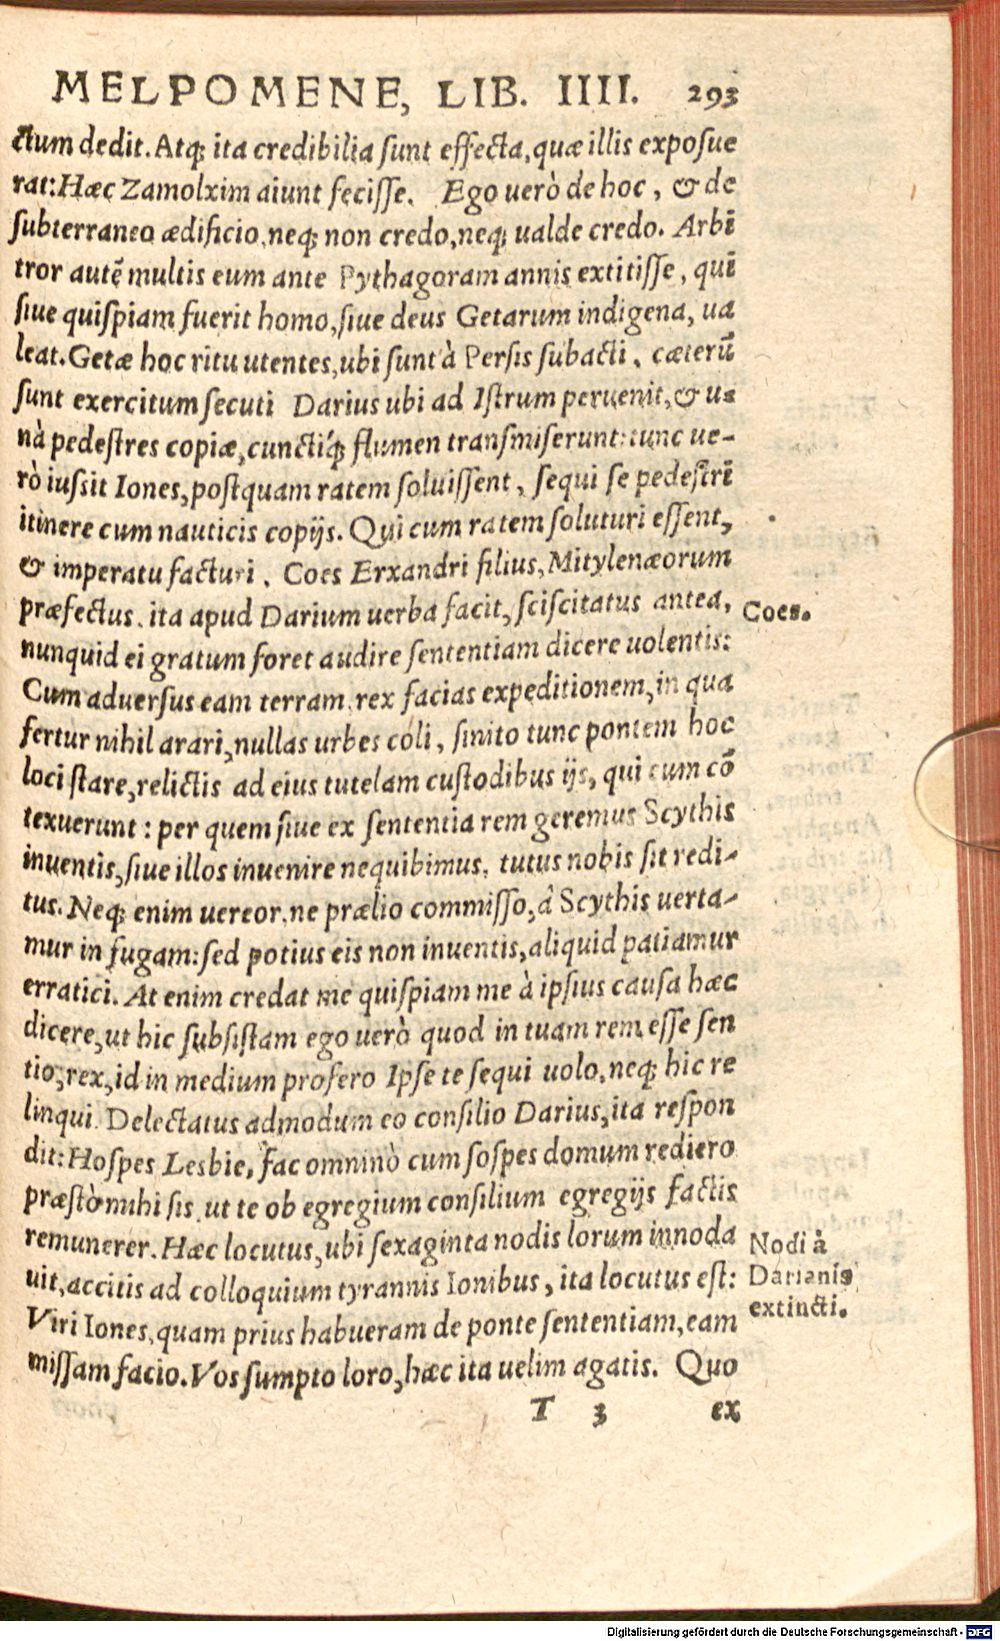 MELPOMENE, LIB. IIII. 293
ctum dedit. Atq; ita credibilia sunt effecta, quæ illis exposue
rat: Hæc Zamolxim aiunt fecisse. Ego uerò de hoc, & de
subterraneo ædificio, neq; non credo, neq; ualde credo. Arbĩ
tror autẽ multis eum ante Pythagoram annis extitisse, quĩ
siue quispiam fuerit homo, siue deus Getarum indigena, ua
leat. Getæ hoc ritu utentes, ubi sunt à Persis subacti, cæterũ
sunt exercitum secuti Darius ubi ad Istrum peruenit, & u=
nà pedestres copiæ, cunctíq; flumen transmiserunt: tunc ue-
rò iussit Iones, postquam ratem soluissent, sequi se pedestrĩ
itinere cum nauticis copijs. Qui cum ratem soluturi essent,
& imperatu facturi, Coes Erxandri filius, Mitylenæorum
præfectus, ita apud Darium uerba facit, sciscitatus antea,
nunquid ei gratum foret audire sententiam dicere uolentis:
Cum aduersus eam terram, rex facias expeditionem, in qua
fertur nihil arari, nullas urbes coli, sinito tunc pontem hoc
loci stare, relictis ad eius tutelam custodibus ijs, qui cum cõ
texuerunt: per quem siue ex sententia rem geremus Scythis
inuentis, siue illos inuenire nequibimus, tutus nobis sit redi-
tus. Neq; enim uereor, ne prælio commisso, à Scythis uerta-
mur in fugam: sed potius eis non inuentis, aliquid patiamur
erratici. At enim credat me quispiam me à ipsius causa hæc
dicere, ut hic subsistam ego uerò quod in tuam rem esse sen
tio, rex, id in medium profero Ipse te sequi uolo, neq; hic re
linqui. Delectatus admodum eo consilio Darius, ita respon
dit: Hospes Lesbie, fac omninò cum sospes domum rediero
præstò mihi sis, ut te ob egregium consilium egregijs factis
remunerer. Hæc locutus, ubi sexaginta nodis lorum innoda
uit, accitis ad colloquium tyrannis Ionibus, ita locutus est:
Viri Iones, quam prius habueram de ponte sententiam, eam
missam facio. Vos sumpto loro, hæc ita uelim agatis. Quo
T 3 ex
Coes.
Nodi à
Darianis
extincti.
Digitalisierung gefördert durch die Deutsche Forschungsgemeinschaft - DFG